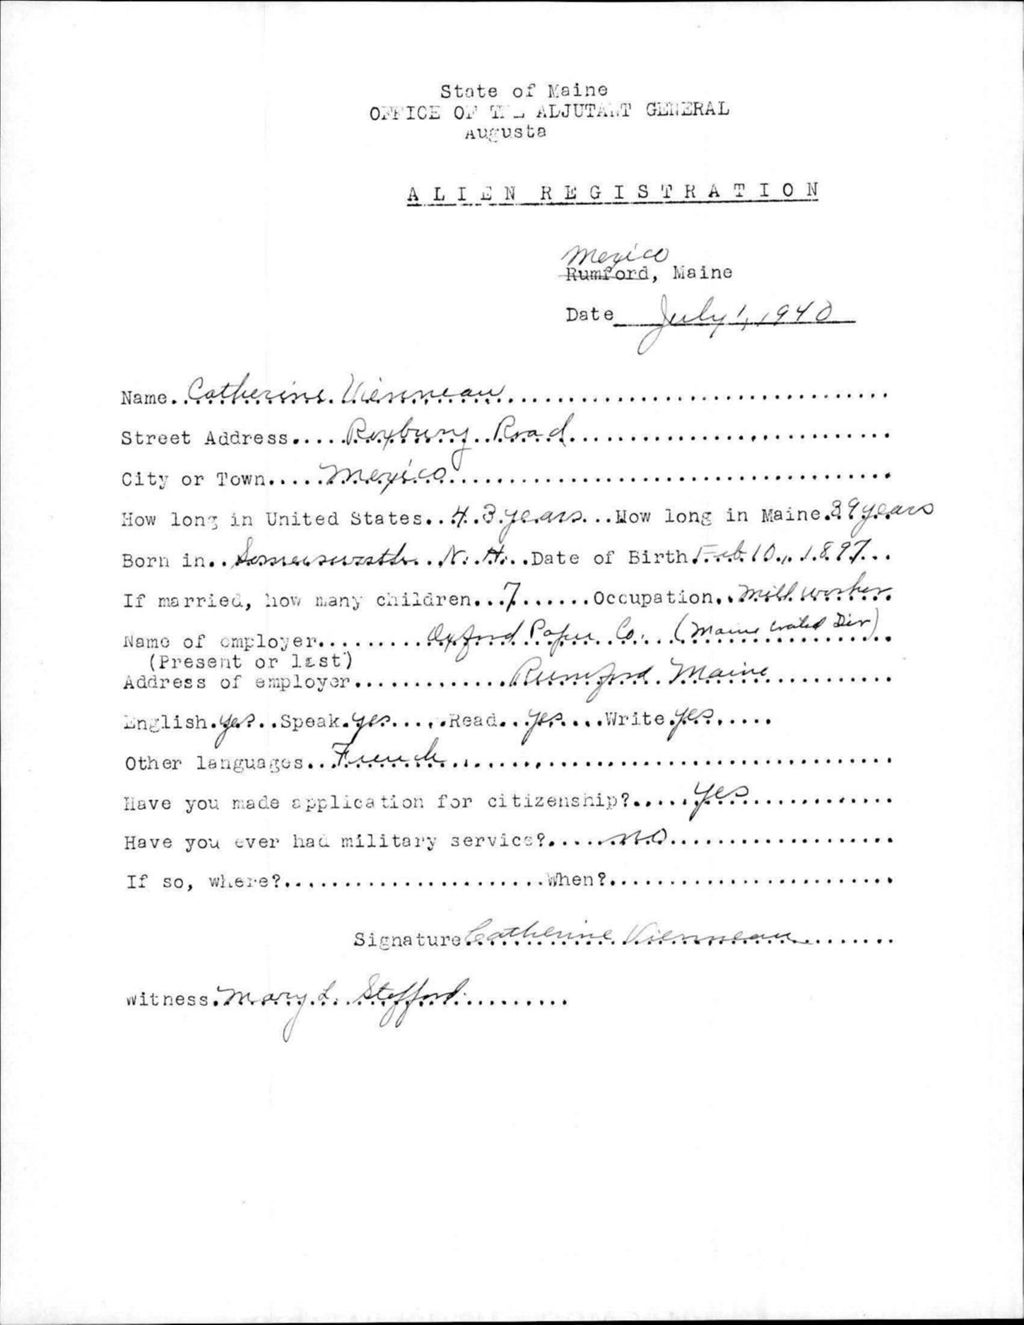 State of Maine
OFFICE OF THE ADJUTANT GENERAL
Augusta
ALIEN REGISTRATION
Mexico
Rumford, Maine
Date July 1, 1940
Name Catherine Vienneau
Street Address Roxbury Road
City or Town Mexico
How long in United States 43 years How long in Maine 39 years
Born in Somersworth N. H. Date of Birth Feb. 10, 1897
If married, how many children 7 Occupation Mill worker
Name of employer Oxford Paper Co. (Maine Div)
(Present or last)
Address of employer Rumford Maine
English yes Speak yes Read yes Write yes
Other languages French
Have you made application for citizenship? yes
Have you ever had military service? no
If so, where? When?
Signature Catherine Vienneau
Witness Mary L. Stefford